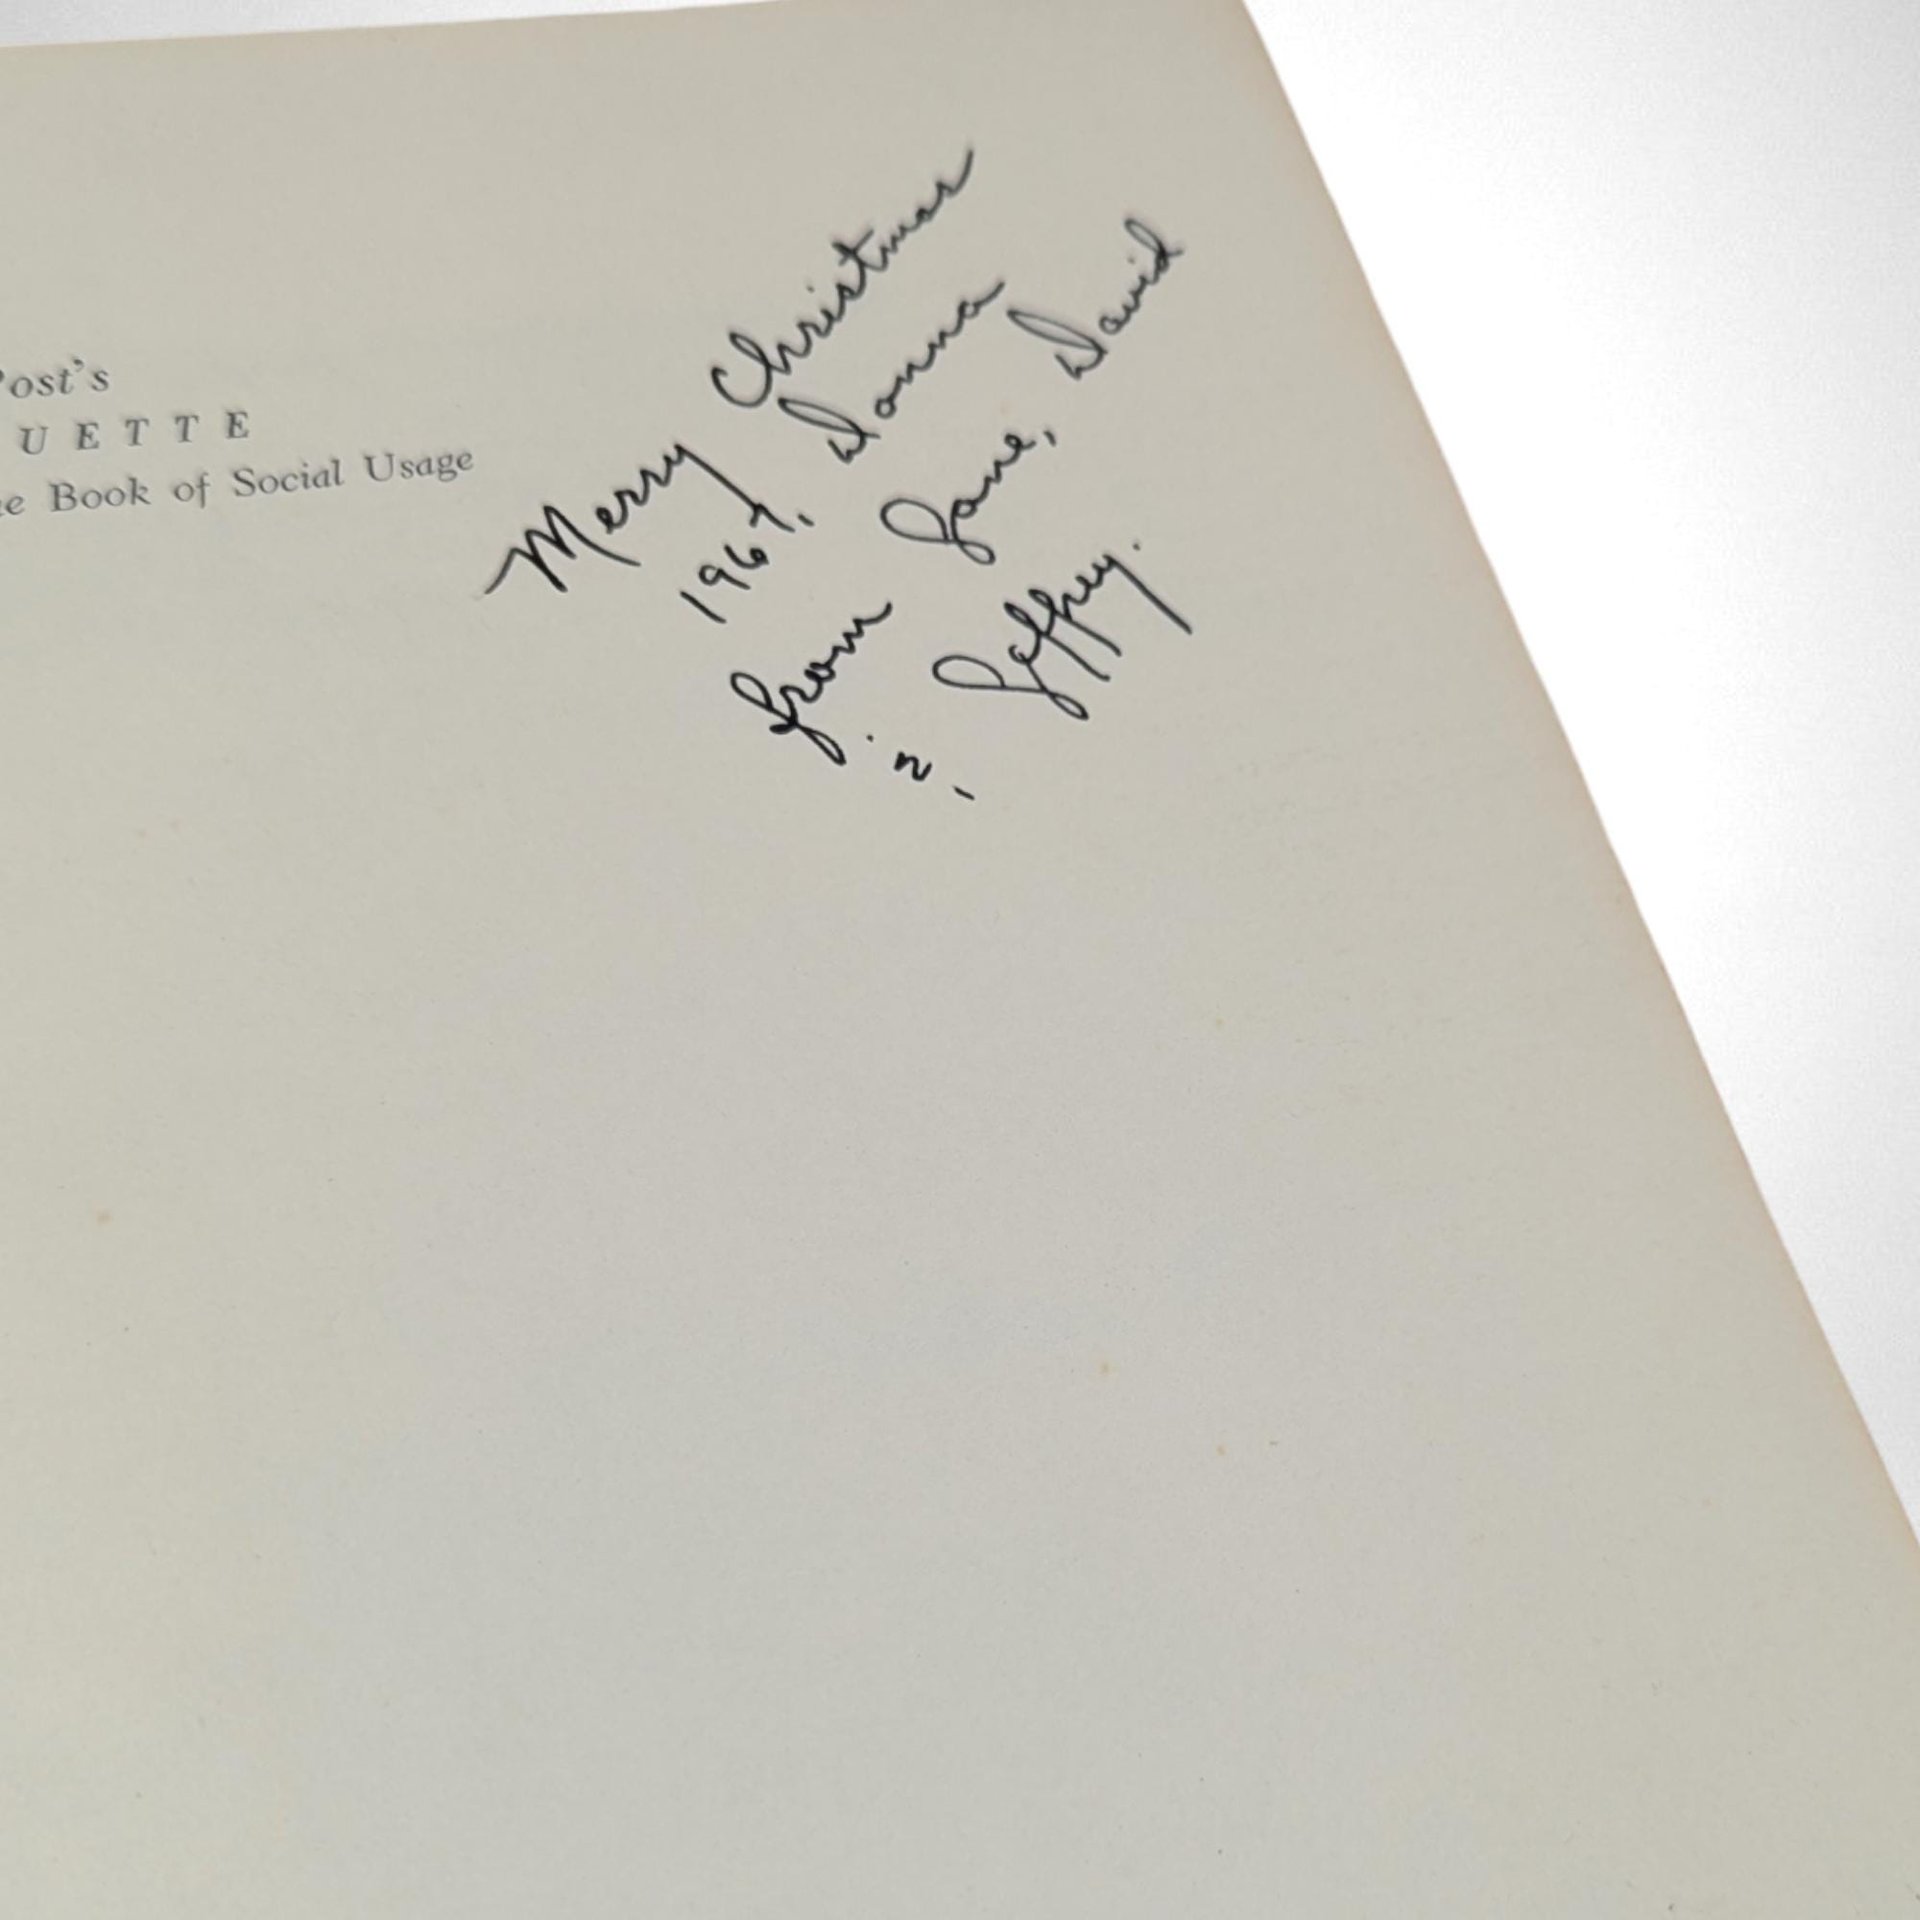 Post's
UETTE
e Book of Social Usage
Merry Christmas
1967, Donna
from Jane, David
'n, Jeffrey.